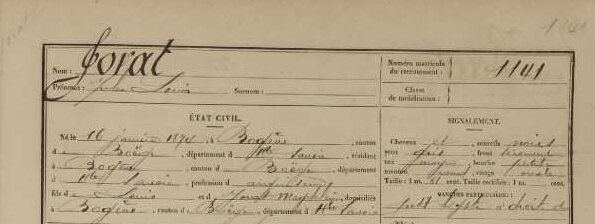 1141
Nom : Jorat
Prénoms : Jules Louis Surnom :
Numéro matricule
du recrutement : 1141
Classe
de mobilisation :
ÉTAT CIVIL.
Né le 16 janvier 1874, à Bogève, canton
d Boëge, département d Hte Savoie, résidant
à Bogève, canton d Boëge, département d
Hte Savoie, profession d
fils d Louis et d domiciliés
à Bogève, canton d Boëge, département d Hte Savoie
SIGNALEMENT.
Cheveux et sourcils noirs
yeux gris, front
nez moyen, bouche petite
menton rond, visage ovale
Taille : 1 m. 61 cent. Taille rectifiée : 1 m. cent.
MARQUES PARTICULIÈRES :
à droite d